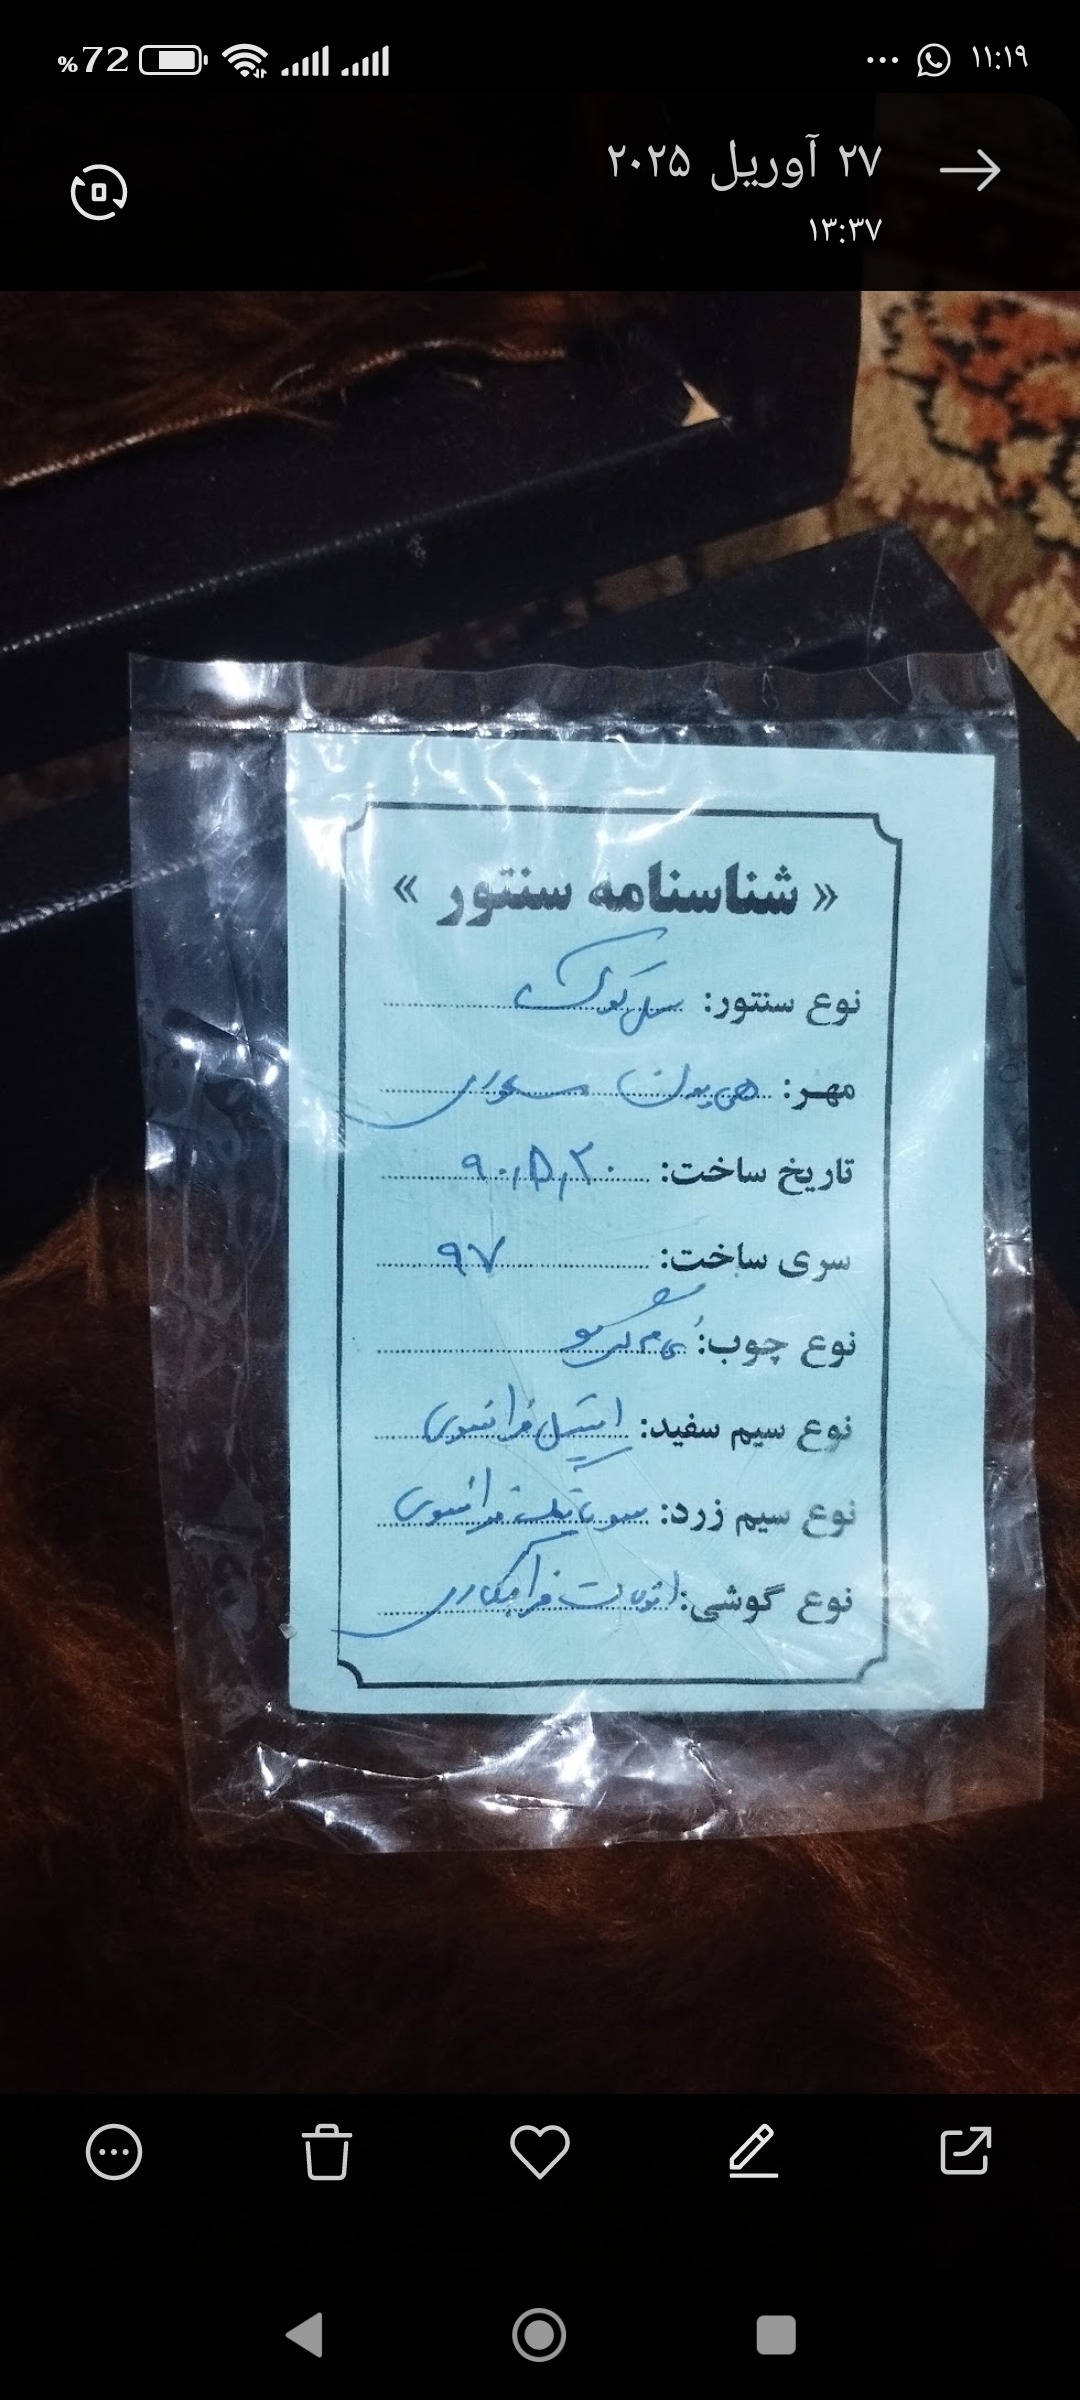 %72
۱۱:۱۹
۲۷ آوریل ۲۰۲۵
۱۳:۳۷
« شناسنامه سنتور »
نوع سنتور: سل کوک
مهر:
تاریخ ساخت: ۹۰،۵،۲۰
سری ساخت: ۹۷
نوع چوب: گردو
نوع سیم سفید: استیل فرانسوی
نوع سیم زرد: فرانسوی
نوع گوشی: